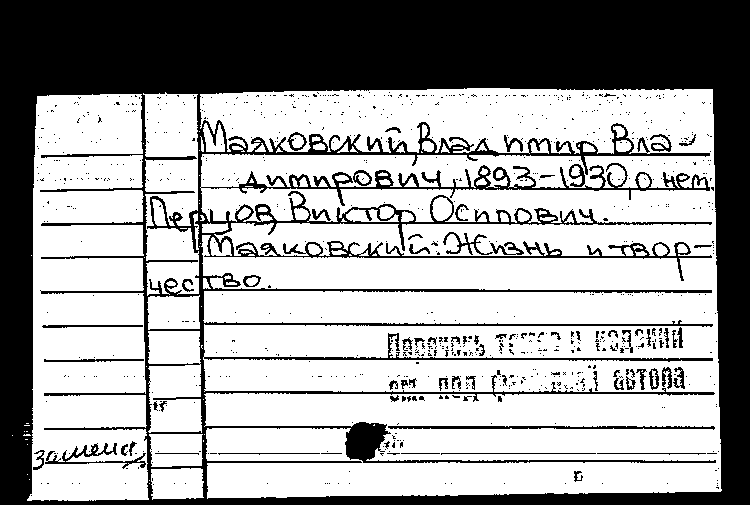 Маяковский, Владимир Вла-
димирович, 1893-1930, о нем.
Перцов, Виктор Осипович.
Маяковский: Жизнь и твор-
чество.
Перечень томов и изданий
см. под фамилией автора
замена